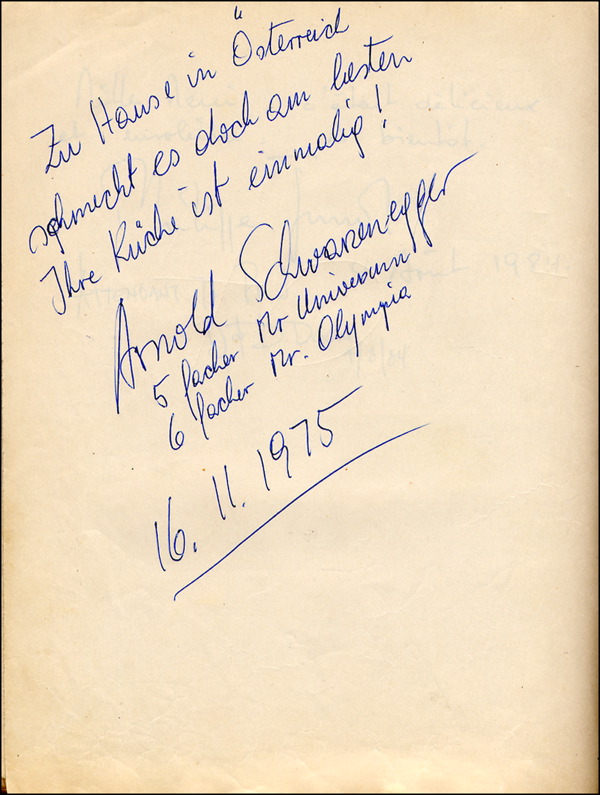 Zu Hause in Österreich
schmeckt es doch am besten
Ihre Küche ist einmalig!
Arnold Schwarzenegger
5 facher Mr Universum
6 facher Mr. Olympia
16. 11. 1975